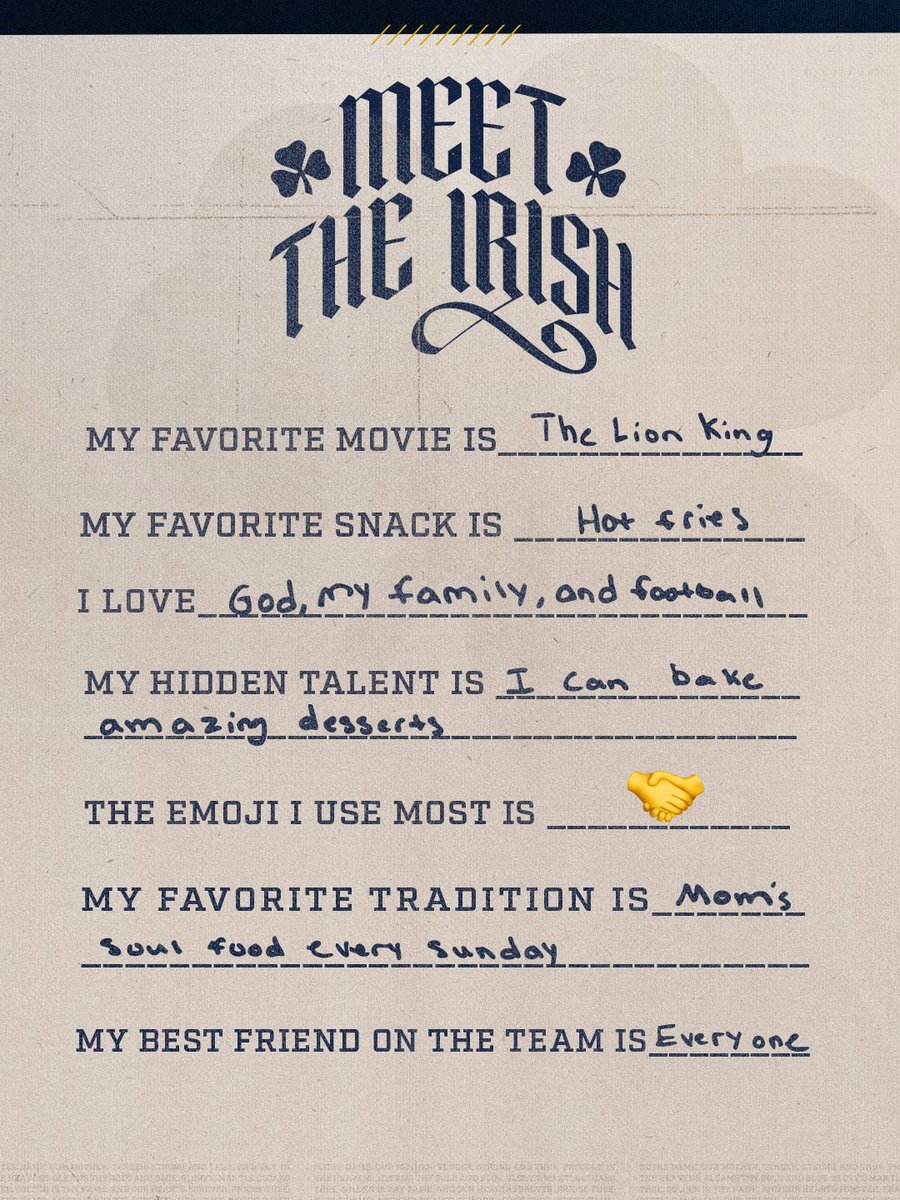 MEET
THE IRISH
MY FAVORITE MOVIE IS The Lion King
MY FAVORITE SNACK IS Hot fries
I LOVE God, my family, and football
MY HIDDEN TALENT IS I can bake
amazing desserts
THE EMOJI I USE MOST IS 🤝
MY FAVORITE TRADITION IS Mom's
soul food every sunday
MY BEST FRIEND ON THE TEAM IS Everyone